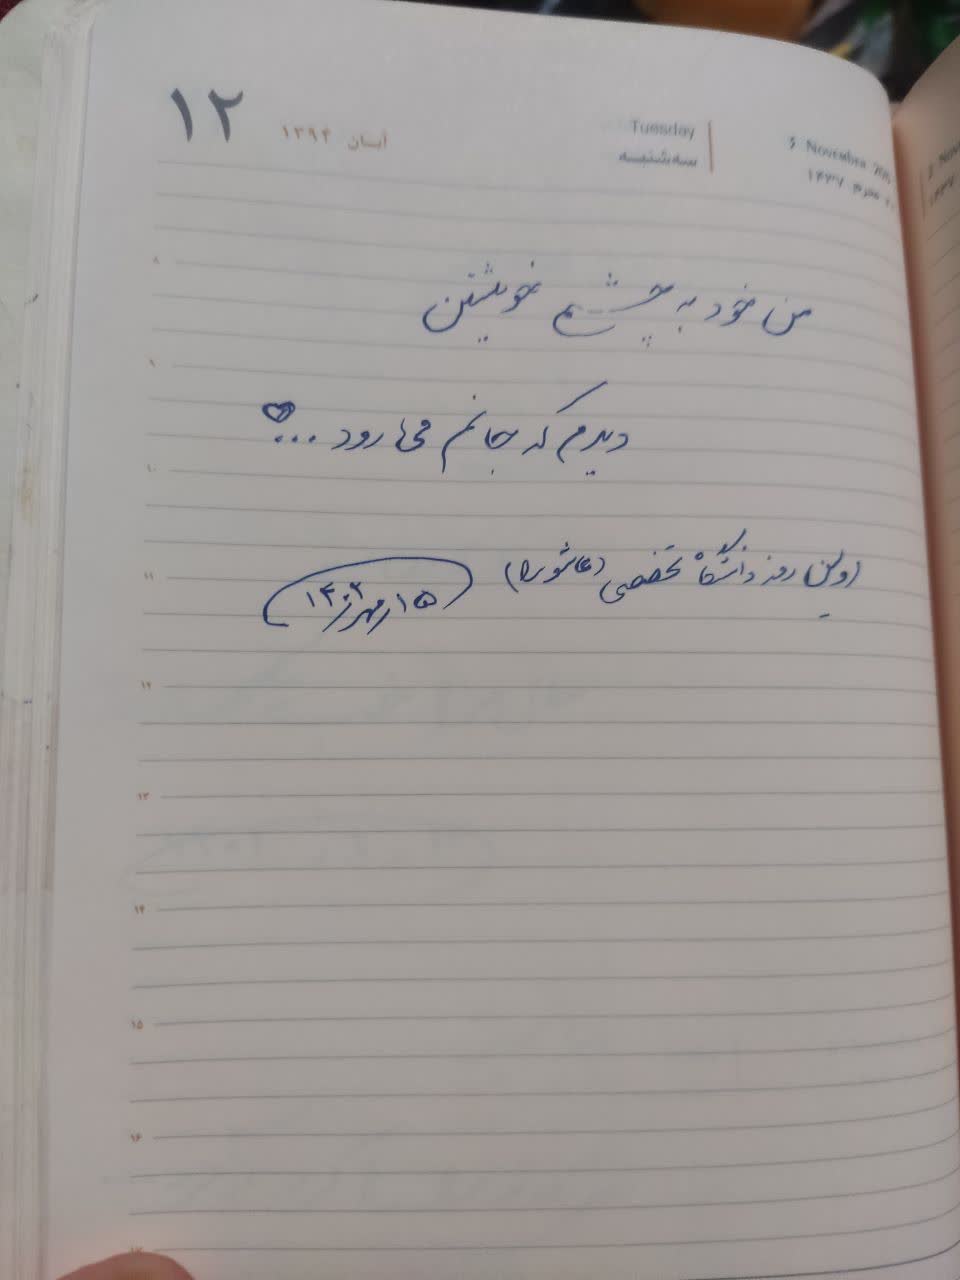 ۱۲
آبان ۱۳۹۴
Tuesday
سه‌شنبه
Novembre
محرم ۱۴۳۷
من خود به چشم خویشتن
۸
دیدم که جانم می رود ...
۹
۱۰
اولین روز دانشگاه تخصصی (عاشورا)
۱۵ مهر ۱۴۰۲
۱۱
۱۲
۱۳
۱۴
۱۵
۱۶